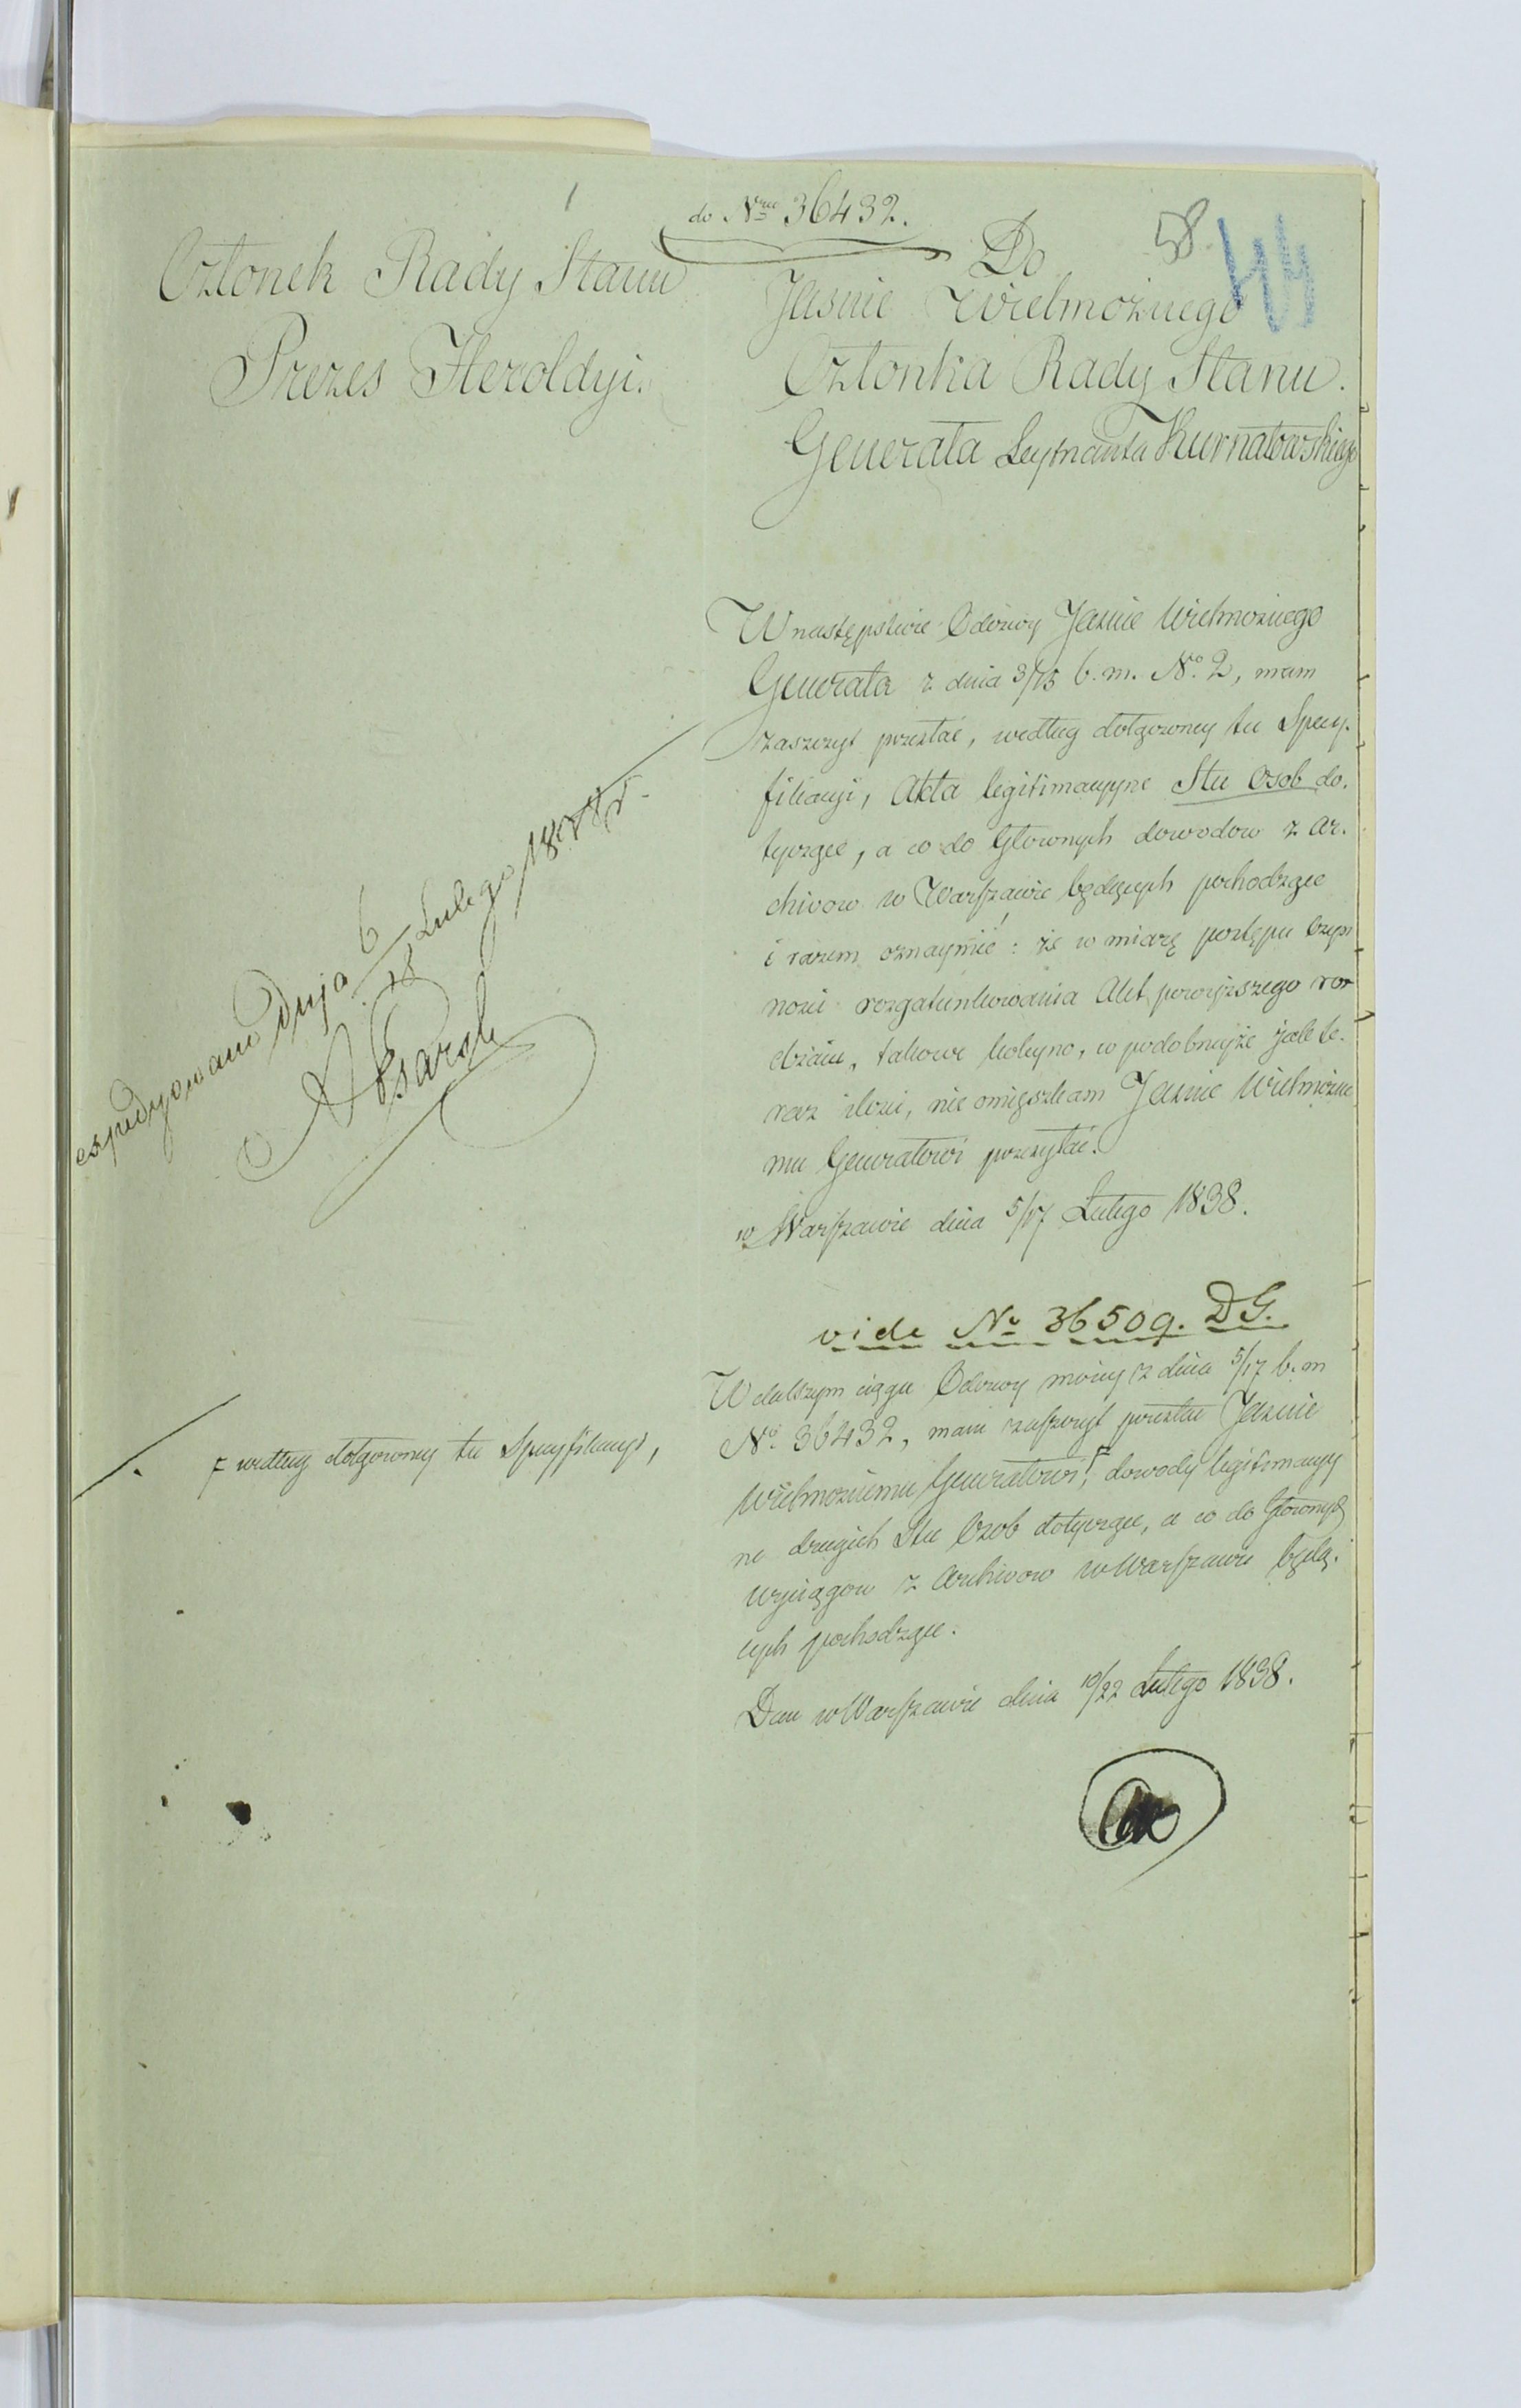 do Nru 36432.
58.
44
Członek Rady Stanu
Prezes Heroldyi.
Do
Jaśnie Wielmożnego
Członka Rady Stanu.
Generała Leytnanta Kurnatowskiego
W następstwie Odezwy Jaśnie Wielmożnego
Generała z dnia 3/15 b. m. No. 2, mam
zaszczyt przesłać, według dołączoney tu Specy-
fikacyi, Akta legitimacyyne Stu Osob do-
tyczące, a co do Głownych dowodow z Ar-
chivow w Warszawie będących pochodzące
i razem oznaymić: że w miarę postępu czyn
ności rozgatunkowania Akt powyższego ro-
dzaiu, takowe kolejno, w podobnejże jak te-
raz ilości, nie omięszkam Jaśnie Wielmożne
mu Generałowi przesyłać.
w Warszawie dnia 5/17 Lutego 1838.
expedyowano Dnja 6/18 Lutego 1838 r.
vide No 36509. DG.
W dalszym ciągu Odezwy moiey z dnia 5/17 b. m
No. 36432, mam zaszczyt przesłać Jaśnie
Wielmożnemu Generałowi, F dowody legitimacyy
ne drugich Stu Osob dotyczące, a co do Głownych
wyciągow z Archivow w Warszawie będą-
cych pochodzące.
F według dołączoney tu Specyfikacyi,
Dan w Warszawie dnia 10/22 Lutego 1838.